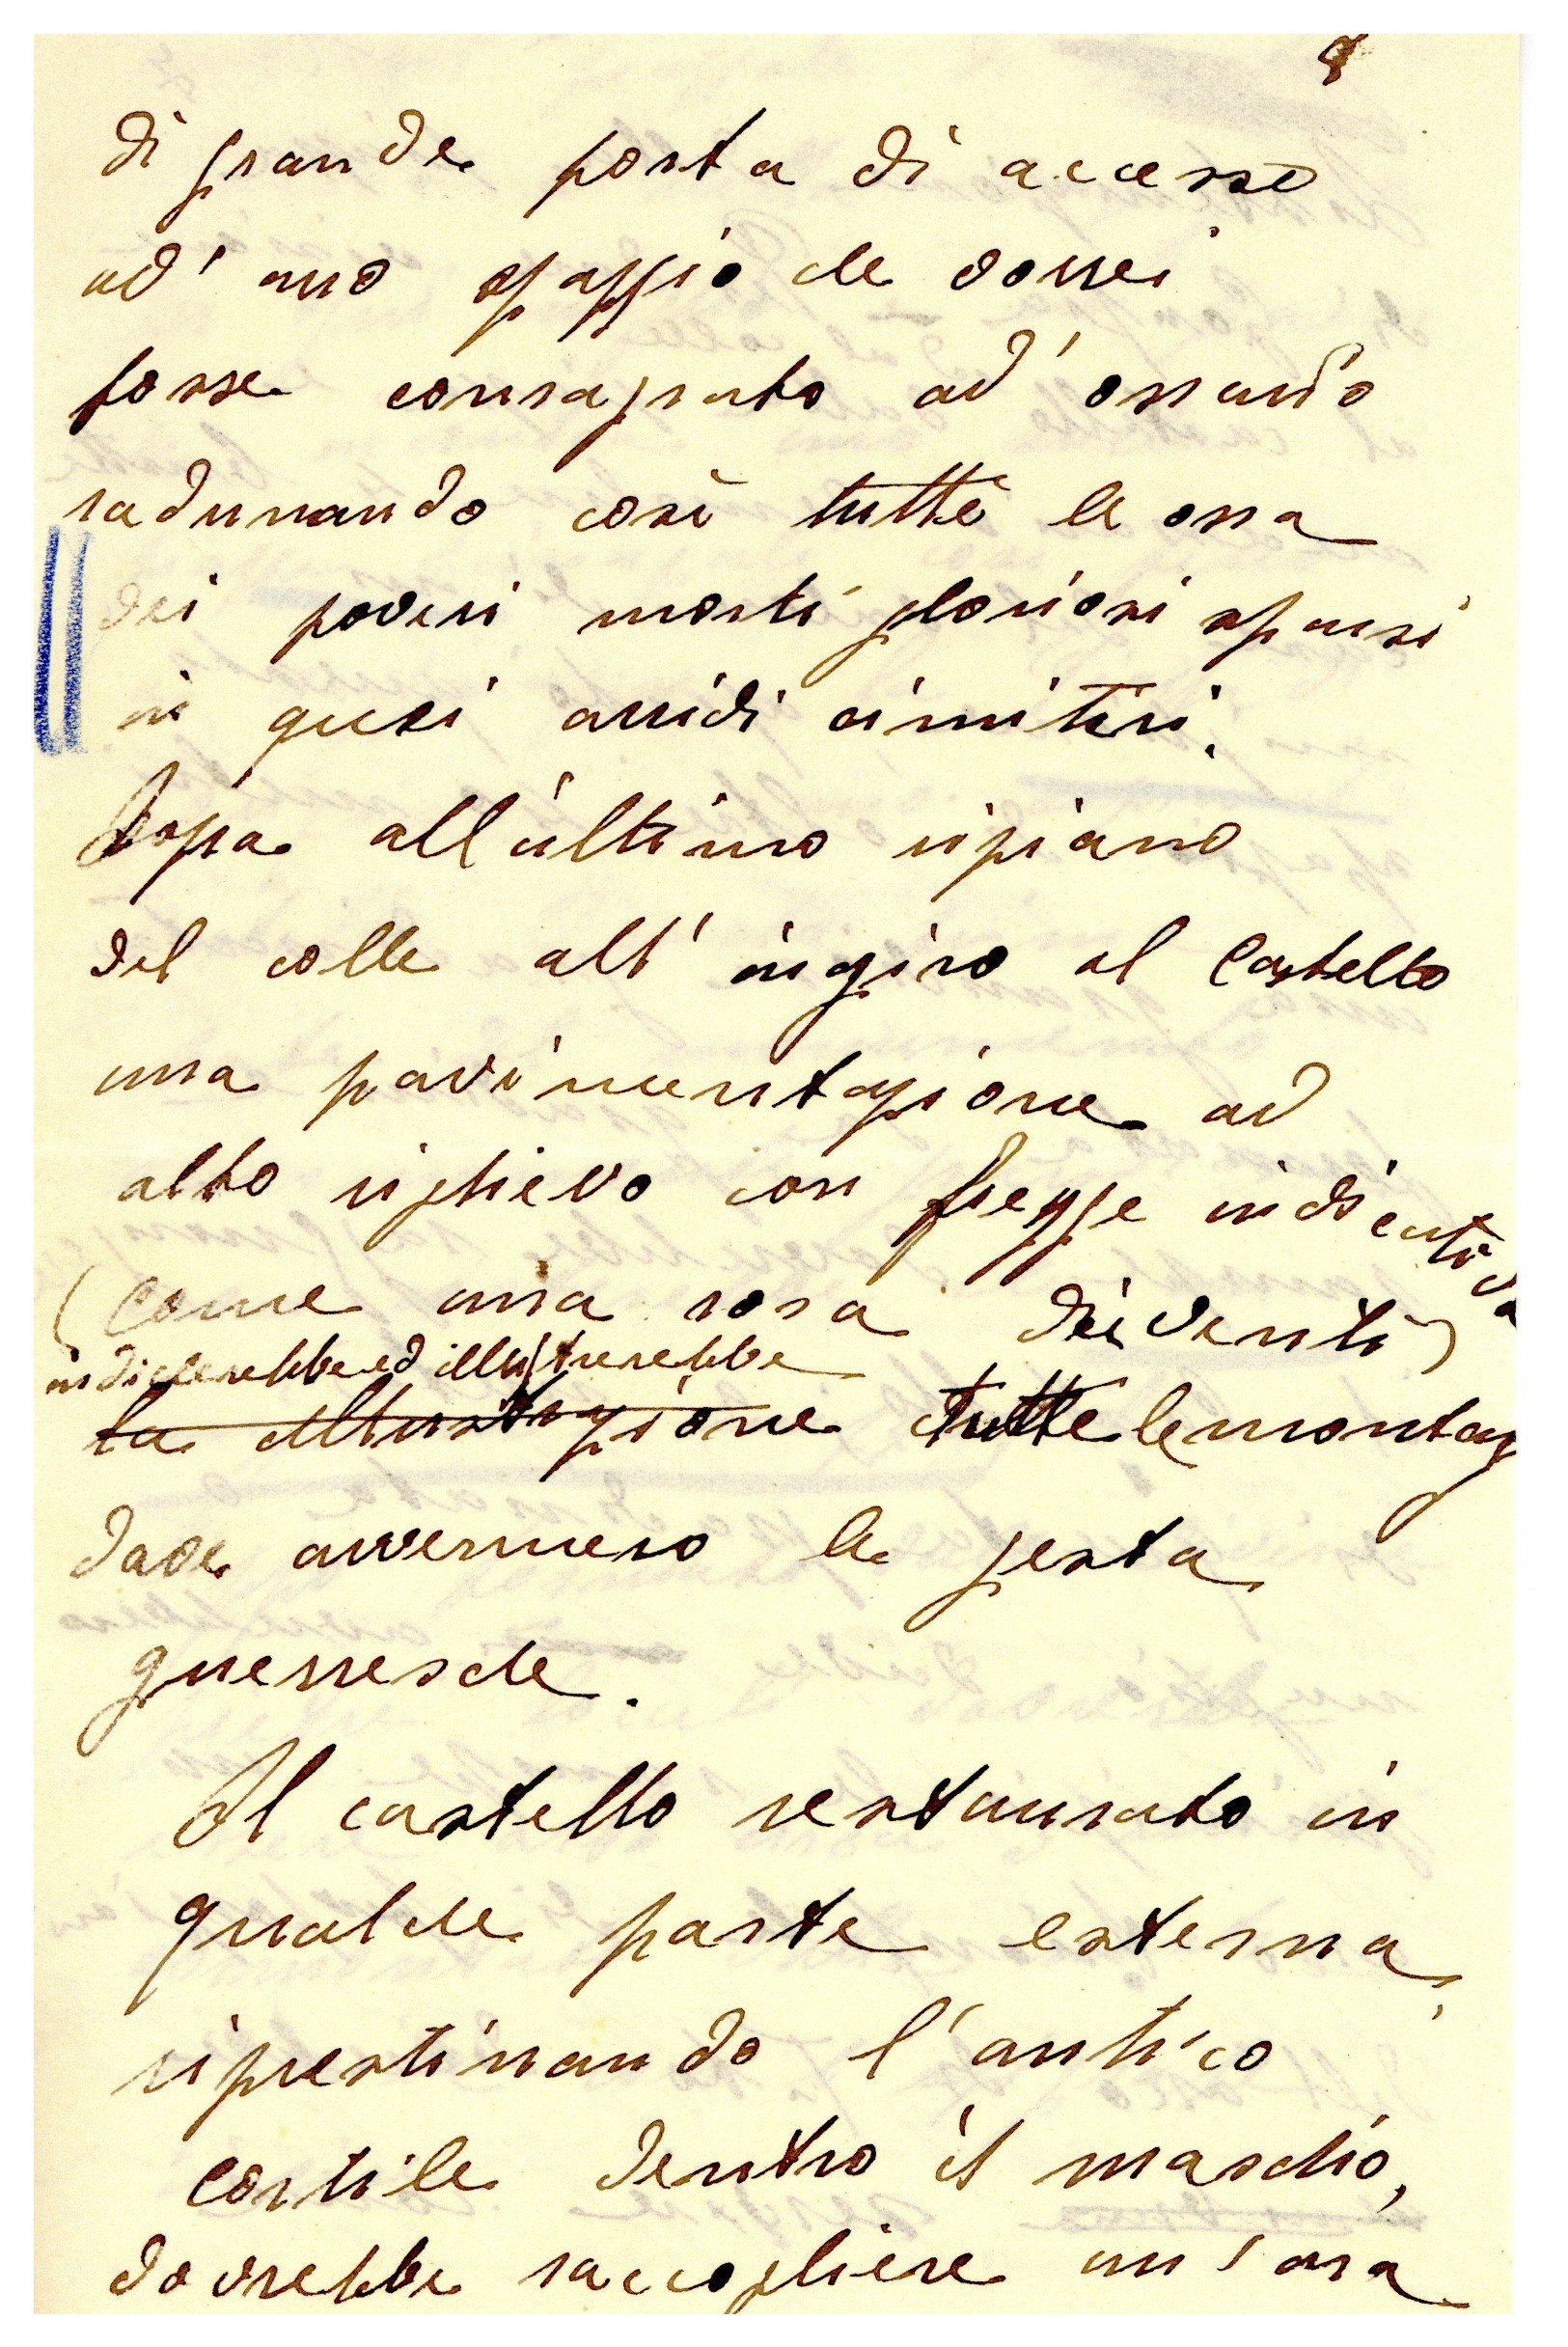 di grande porta di accesso
ad' uno spazzio che vorrei
fosse consagrato ad' ossario
radunando così tutte le ossa
dei poveri morti gloriosi sparsi
in quei arridi cimiteri.
Sopra all'ultimo ripiano
del colle all' ingiro al Castello
una pavimentazione ad
alto riglievo con frezze indicanti
(Come una rosa dei venti)
indicherebbe ed illustrerebbe
la illustrazione tutte le montag
dove avvennero le gesta
guerresche.
Il castello restaurato in
qualche parte esterna,
ripristinando l'antico
cortile dentro il maschio,
dovrebbe raccogliere un'ara